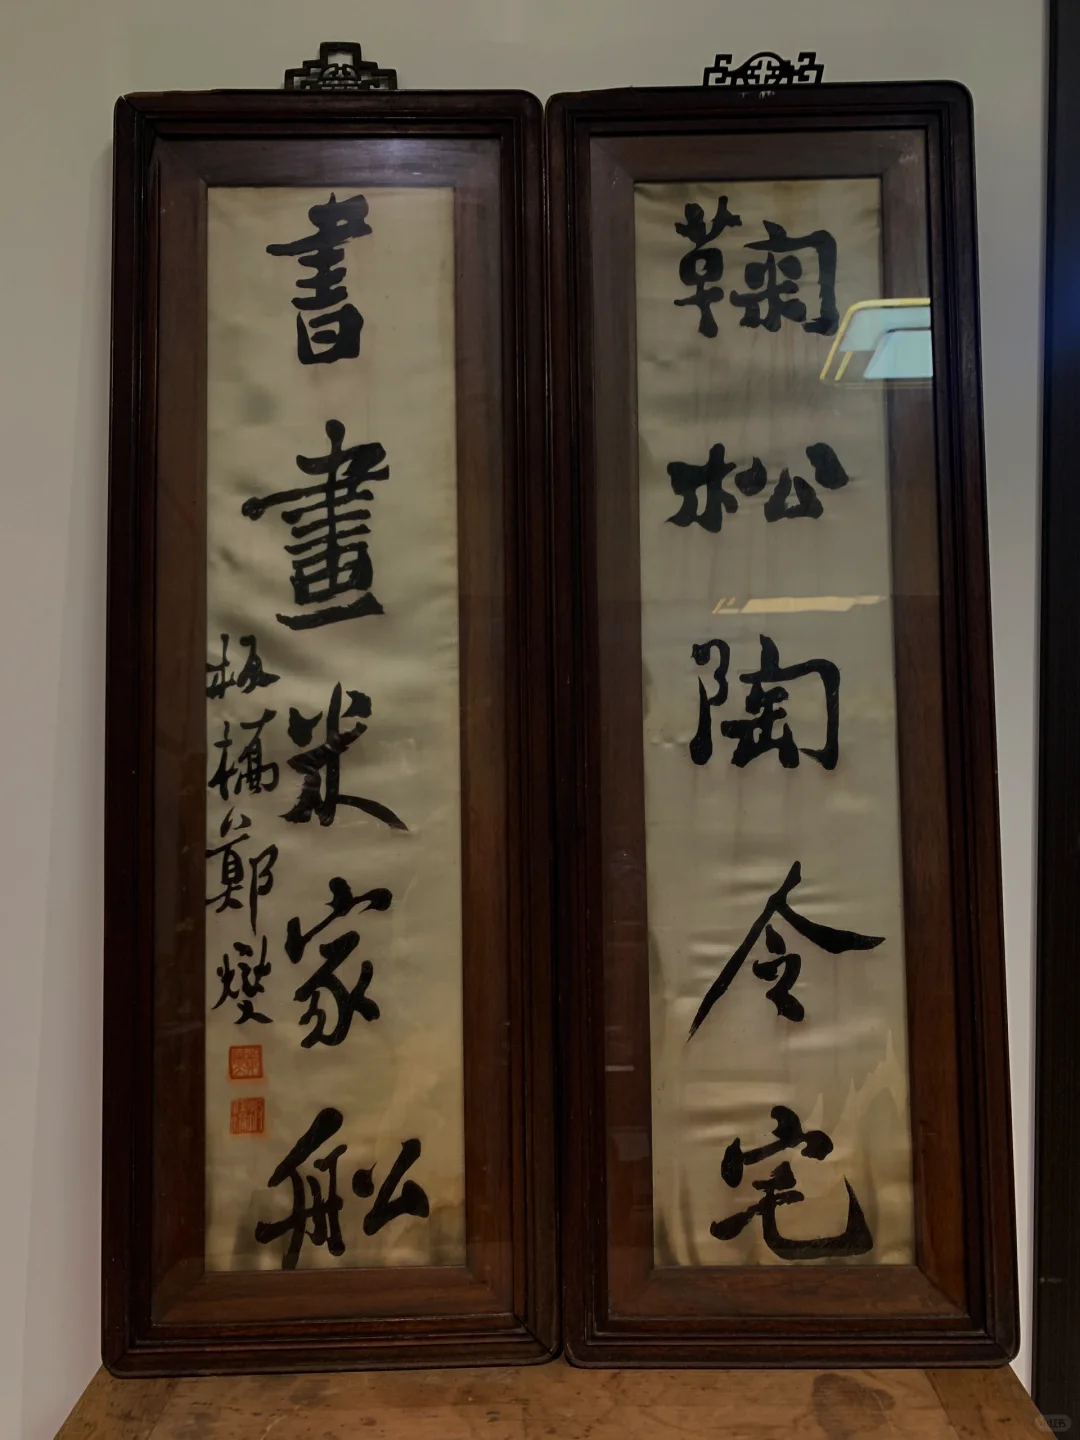 鞠松陶令宅
書畫米家舩
板橋鄭燮